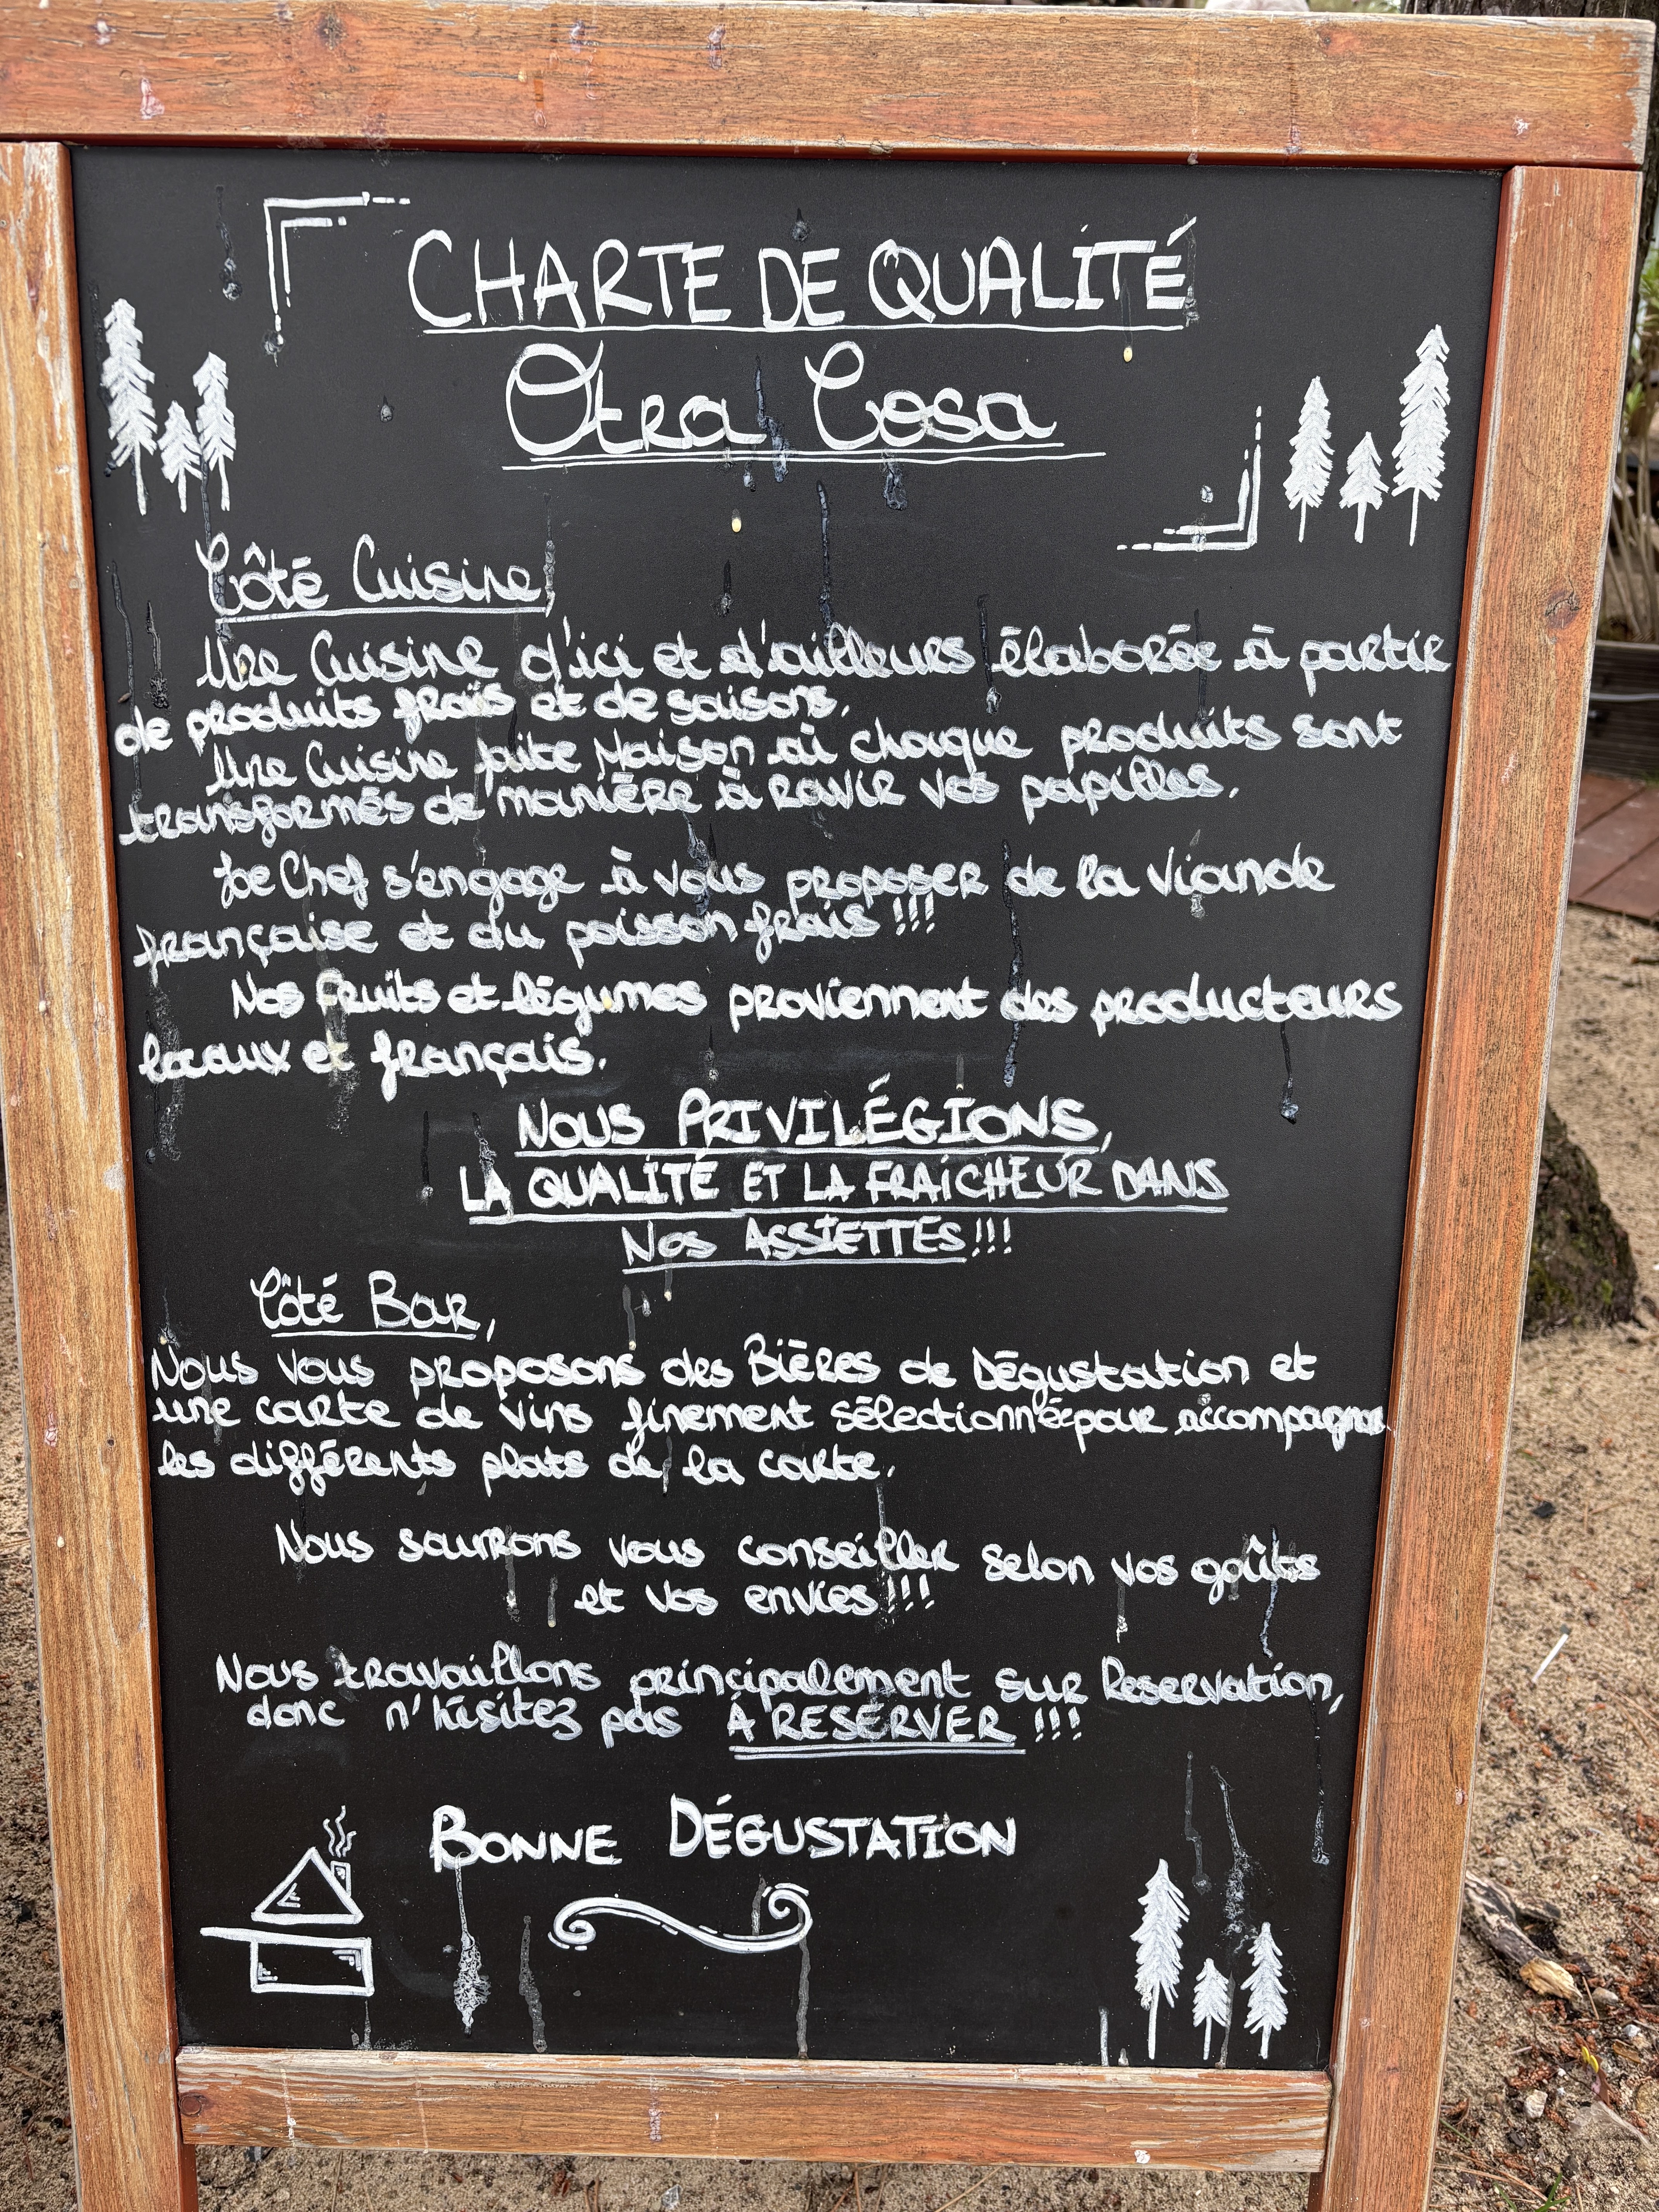 CHARTE DE QUALITÉ
Otra Cosa
Côté Cuisine,
Une Cuisine d'ici et d'ailleurs élaborée à partir
de produits frais et de saisons.
Une Cuisine faite Maison où chaque produits sont
transformés de manière à ravir vos papilles.
Le Chef s'engage à vous proposer de la viande
française et du poisson frais !!!
Nos fruits et légumes proviennent des producteurs
locaux et français.
NOUS PRIVILÉGIONS,
LA QUALITÉ ET LA FRAÎCHEUR DANS
NOS ASSIETTES!!!
Côté Bar,
Nous vous proposons des Bières de Dégustation et
une carte de vins finement sélectionnée pour accompagner
les différents plats de la carte.
Nous saurons vous conseiller selon vos goûts
et vos envies!!!
Nous travaillons principalement sur Reservation,
donc n'hésitez pas À RESERVER !!!
BONNE DÉGUSTATION